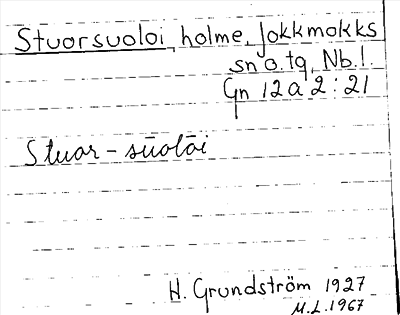 Stuorsuoloi, holme, Jokkmokks
sn o. tg, Nb. l.
Gn 12 a 2 : 21
Stuor - sūolōi
H. Grundström 1927
M.L. 1967